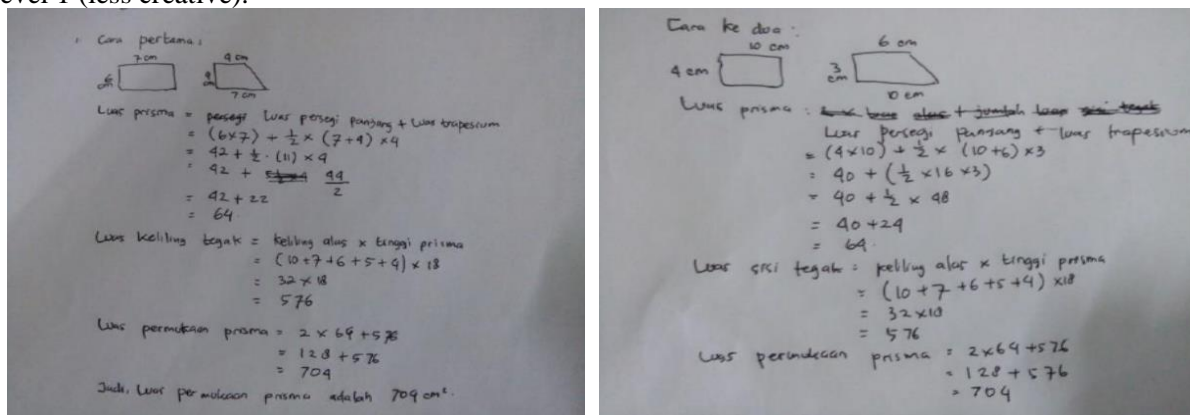 evel 1 (less creative).
Cara pertama :
7 cm
4 cm
7 cm
Luas prisma = Luas persegi panjang + Luas trapesium
= (6×7) + 1/2 × (7+4) ×4
= 42 + 1/2 . (11) × 4
= 42 + 44/2
= 42 + 22
= 64.
Luas Keliling tegak = keliling alas × tinggi prisma
= (10+7+6+5+4) × 18
= 32 × 18
= 576
Luas permukaan prisma = 2 × 64 + 576
= 128 + 576
= 704
Jadi, Luas permukaan prisma adalah 704 cm².
Cara ke dua :
10 cm
6 cm
4 cm
3 cm
10 cm
Luas prisma :
Luas persegi panjang + luas trapesium
= (4×10) + 1/2 × (10+6) ×3
= 40 + (1/2 ×16 ×3)
= 40 + 1/2 × 48
= 40 + 24
= 64.
Luas sisi tegak = keliling alas × tinggi prisma
= (10+7+6+5+4) ×18
= 32×18
= 576
Luas permukaan prisma = 2×64 + 576
= 128 + 576
= 704